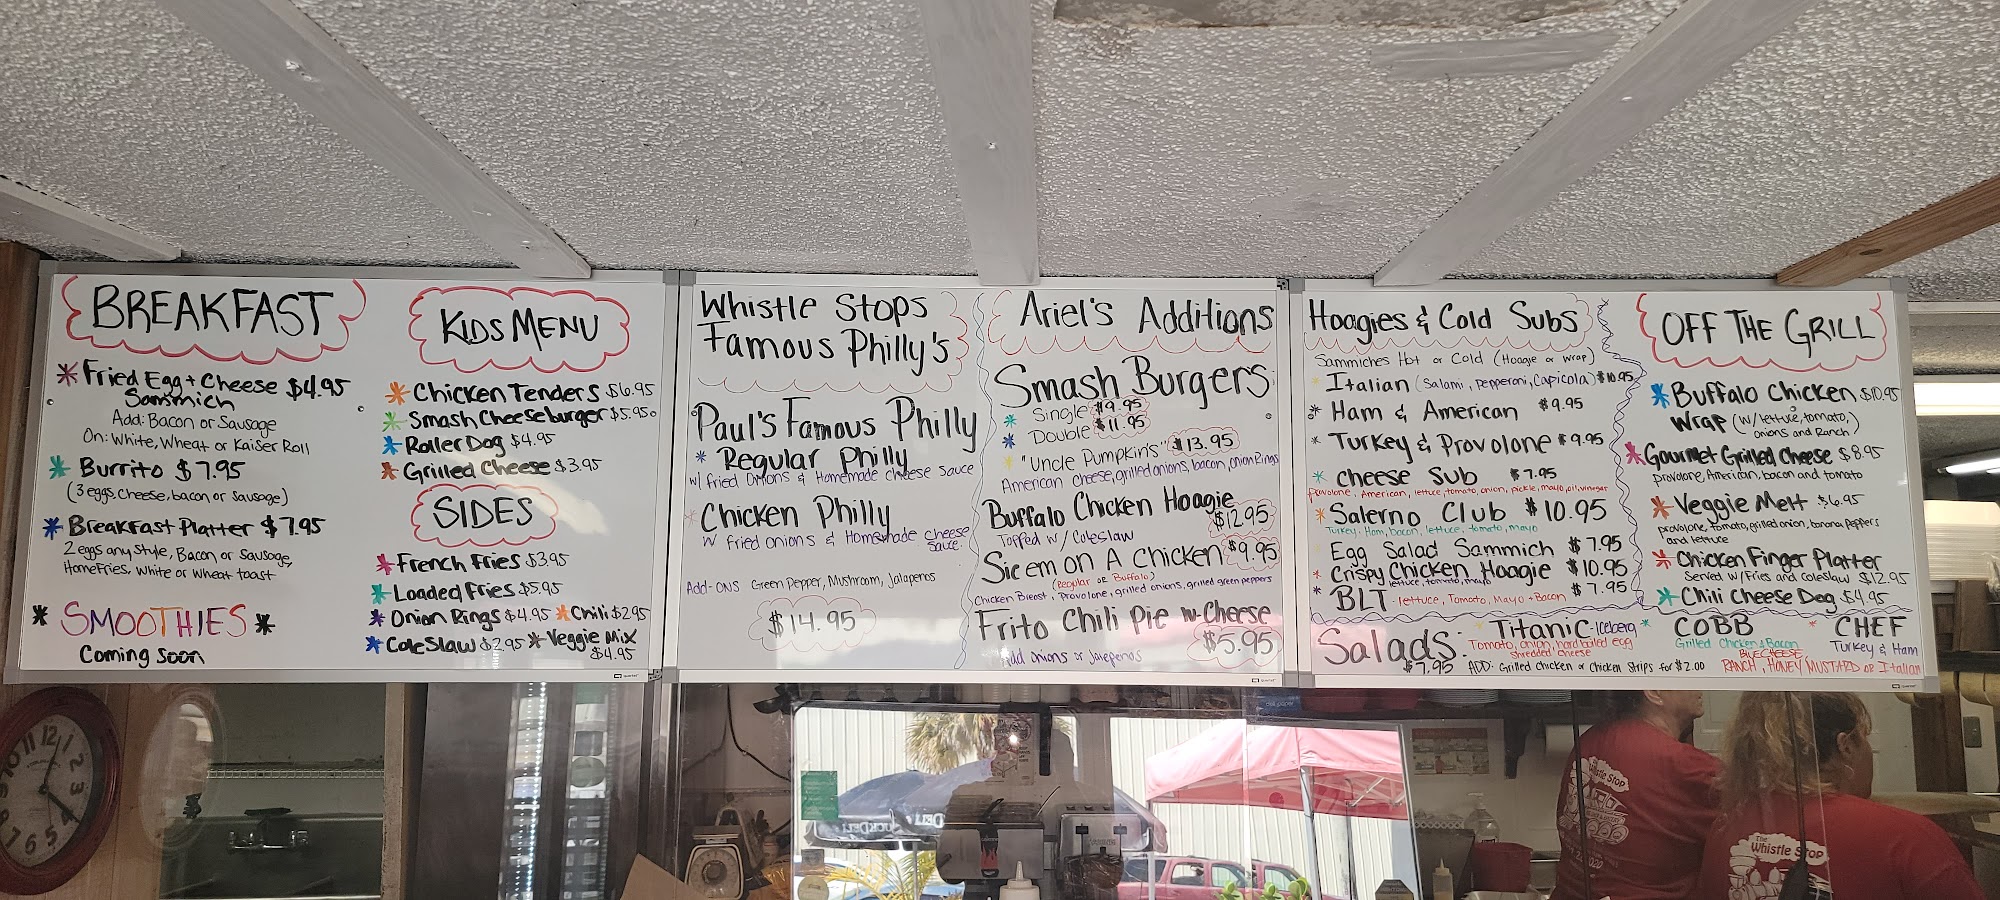 BREAKFAST
Fried Egg + Cheese $4.95
Sammich
Add: Bacon or Sausage
On: White, Wheat or Kaiser Roll
Burrito $7.95
(3 eggs, cheese, bacon or Sausage)
Breakfast Platter $7.95
2 eggs any style, Bacon or Sausage,
HomeFries, White or Wheat toast
SMOOTHIES
Coming Soon
KIDS MENU
Chicken Tenders $6.95
Smash Cheeseburger $5.95
Roller Dog $4.95
Grilled Cheese $3.95
SIDES
French Fries $3.95
Loaded Fries $5.95
Onion Rings $4.95 Chili $2.95
Cole Slaw $2.95 Veggie Mix
$4.95
Whistle Stops
Famous Philly's
Paul's Famous Philly
Regular Philly
w/ fried Onions & Homemade cheese sauce
Chicken Philly
w/ fried onions & Homemade cheese
sauce.
Add-ons Green Pepper, Mushroom, Jalapenos
$14.95
Ariel's Additions
Smash Burgers
Single $9.95
Double $11.95
"Uncle Pumpkin's" $13.95
American cheese, grilled onions, bacon, onion Rings
Buffalo Chicken Hoagie
$12.95
Topped w/ Coleslaw
Sic em on A Chicken $9.95
(Regular or Buffalo)
Chicken Breast, Provolone, grilled onions, grilled green peppers
Frito Chili Pie w/ Cheese
$5.95
Add onions or Jalepenos
Hoagies & Cold Subs
Sammiches Hot or Cold (Hoagie or Wrap)
Italian (Salami, pepperoni, Capicola) $10.95
Ham & American $9.95
Turkey & Provolone $9.95
cheese Sub $7.95
provolone, American, lettuce, tomato, onion, pickle, mayo, oil, vinegar
Salerno Club $10.95
Turkey, Ham, bacon, lettuce, tomato, mayo
Egg Salad Sammich $7.95
Crispy Chicken Hoagie $10.95
lettuce, tomato, mayo
BLT - lettuce, Tomato, Mayo + Bacon $7.95
OFF THE GRILL
Buffalo Chicken $10.95
Wrap (w/ lettuce, tomato,
onions and Ranch)
Gourmet Grilled Cheese $8.95
provolone, American, bacon and tomato
Veggie Melt $6.95
provolone, tomato, grilled onion, banana peppers
and lettuce
Chicken Finger Platter
Served w/ Fries and coleslaw $12.95
Chili Cheese Dog $4.95
Salads:
$7.95
Titanic - Iceberg
Tomato, onion, hard boiled egg
shredded cheese
ADD: Grilled Chicken or Chicken Strips for $2.00
COBB
Grilled Chicken & Bacon
CHEF
Turkey & Ham
BLUE CHEESE,
RANCH, HONEY MUSTARD or Italian
12
1
2
3
4
5
6
7
9
10
11
The
Whistle Stop
Whistle Stop